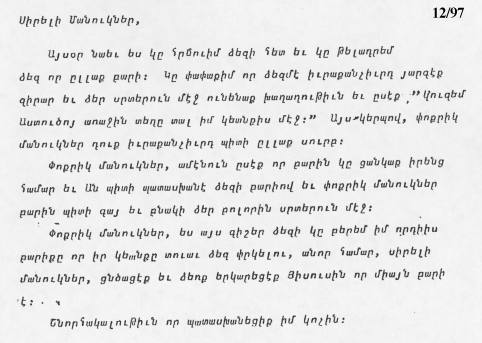 12/97
Սիրելի Մանուկներ,
Այսօր նաեւ ես կը հրճուիմ ձեզի հետ եւ կը թելադրեմ
ձեզ որ ըլլաք բարի: Կը փափաքիմ որ ձեզմէ իւրաքանչիւրդ յարգէք
զիրար եւ ձեր սրտերուն մէջ ունենաք խաղաղութիւն եւ ըսէք ,"Կուզեմ
Աստուծոյ առաջին տեղը տալ իմ կեանքիս մէջ:" Այս կերպով, փոքրիկ
մանուկներ դուք իւրաքանչիւրդ պիտի ըլլաք սուրբ:
Փոքրիկ մանուկներ, ամէնուն ըսէք որ բարին կը ցանկաք իրենց
համար եւ Ան պիտի պատասխանէ ձեզի բարիով եւ փոքրիկ մանուկներ
բարին պիտի գայ եւ բնակի ձեր բոլորին սրտերուն մէջ:
Փոքրիկ մանուկներ, ես այս գիշեր ձեզի կը բերեմ իմ որդիիս
բարիքը որ իր կեանքը տուաւ ձեզ փրկելու, անոր համար, սիրելի
մանուկներ, ցնծացէք եւ ձեռք երկարեցէք Յիսուսին որ միայն բարի
է:
Շնորհակալութիւն որ պատասխանեցիք իմ կոչին: